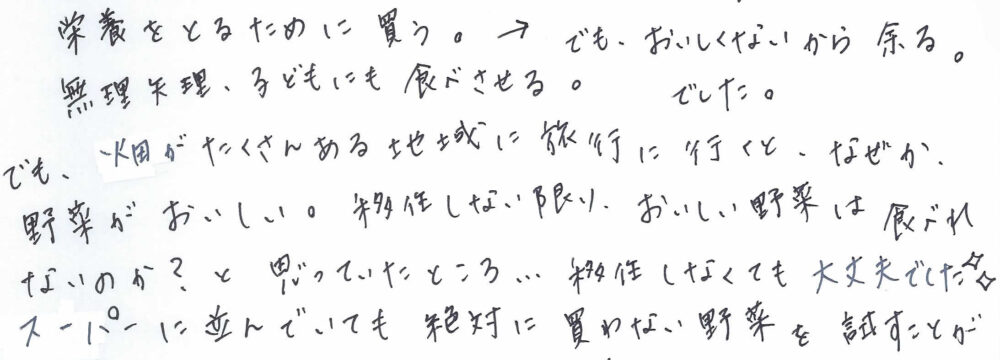 栄養をとるために買う。→ でも、おいしくないから余る。
無理矢理、子どもにも食べさせる。 でした。
でも、畑がたくさんある地域に旅行に行くと、なぜか、
野菜がおいしい。移住しない限り、おいしい野菜は食べれ
ないのか？と思っていたところ…移住しなくても大丈夫でした✧✧
スーパーに並んでいても絶対に買わない野菜を試すことが